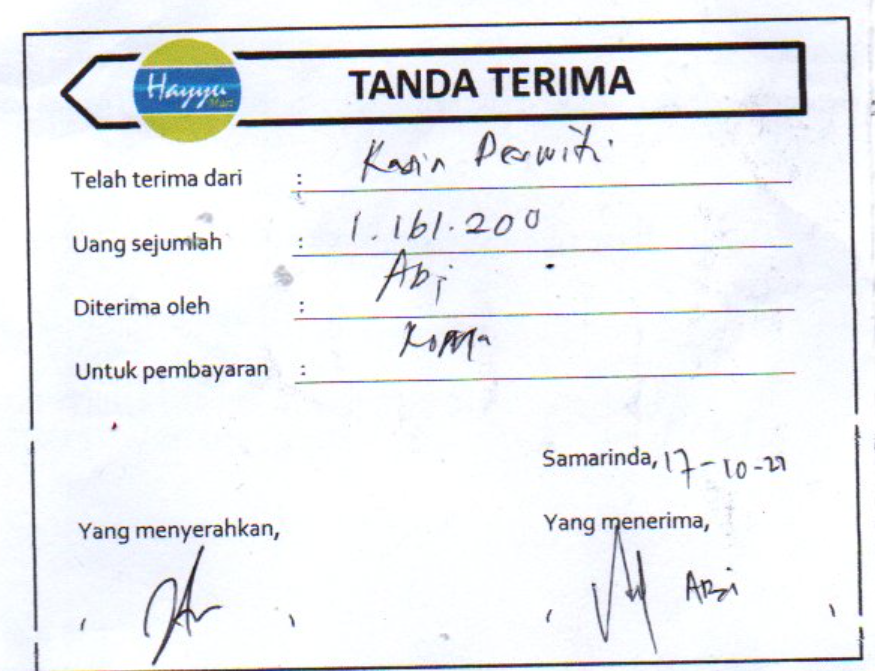 Hayyu Mart
TANDA TERIMA
Telah terima dari : Kasir Perwiti
Uang sejumlah : 1.161.200
Diterima oleh : Abi
Untuk pembayaran :
Samarinda, 17-10-
Yang menyerahkan,
Yang menerima,
ABi